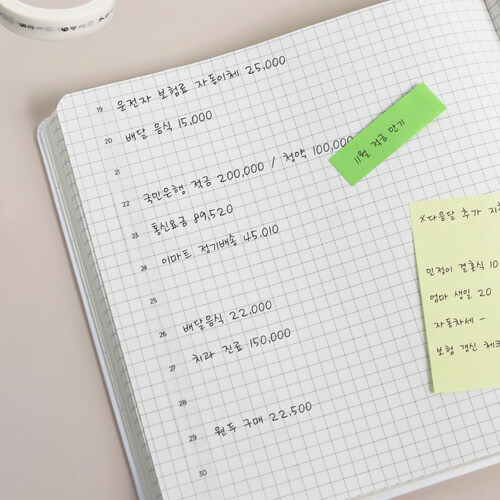 19 운전자 보험료 자동이체 25,000
20 배달 음식 15,000
21
22 국민은행 적금 200,000 / 청약 100,000
23 통신요금 89,520
24 이마트 정기배송 45,010
25
26 배달음식 22,000
27 치과 진료 150,000
28
29 원두 구매 22,500
30
11월 적금 만기
※다음달 추가
민정이 결혼식 10
엄마 생일 20
자동차세 -
보험 갱신 체크